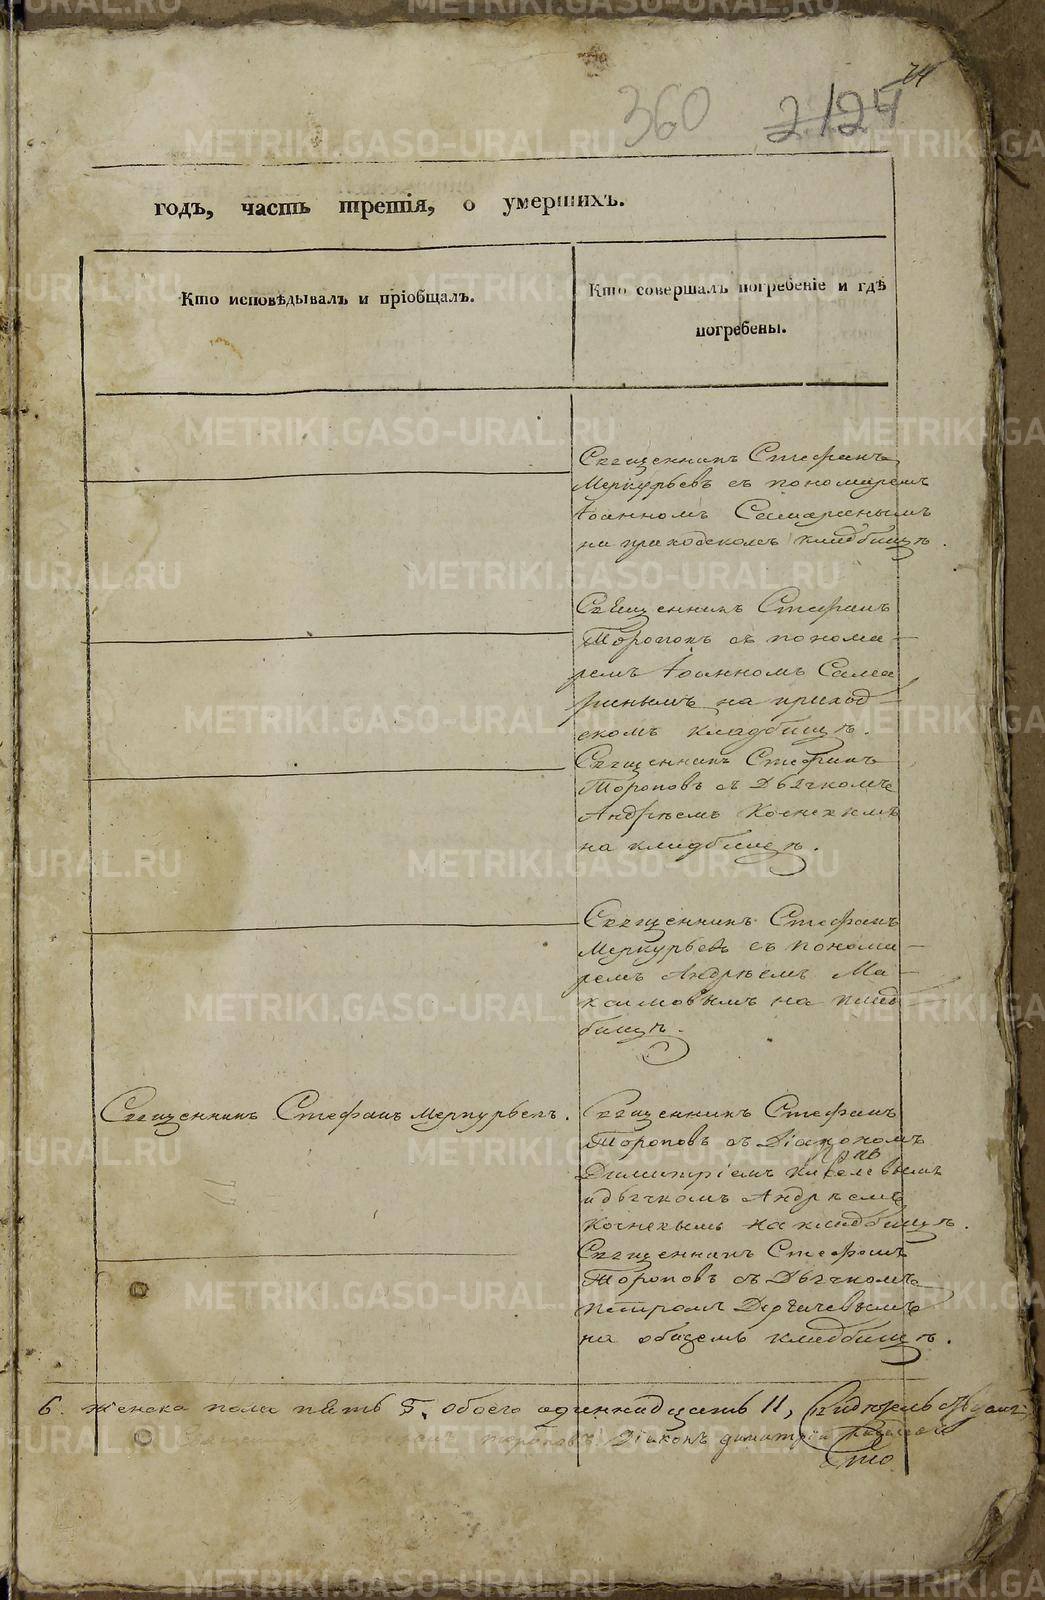 74
360 2124
годъ, часть третія, о умершихъ.
Кто исповѣдывалъ и пріобщалъ.
Кто совершалъ погребеніе и гдѣ
погребены.
Священникъ Стефанъ
Меркурьевъ съ пономаремъ
Іоанномъ Самаринымъ
на приходскомъ кладбищѣ.
Священникъ Стефанъ
Тороповъ съ понома-
ремъ Іоанномъ Сама
ринымъ на приход-
скомъ кладбищѣ.
Священникъ Стефанъ
Тороповъ съ Дьячкомъ
Андрѣемъ
на кладбищѣ.
Священникъ Стефанъ
Меркурьевъ съ понома-
ремъ Андрѣемъ Ма-
ксимовымъ на клад-
бищѣ.
Священникъ Стефанъ Меркурьевъ.
Священникъ Стефанъ
Тороповъ съ Діакономъ
Димитріемъ
и дьячкомъ Андрѣемъ
на кладбищѣ.
Священникъ Стефанъ
Тороповъ съ Дьячкомъ
Петромъ Дергачевымъ
на общемъ кладбищѣ.
6. женска пола пять 5. обоего одиннадцать 11,
Тороповъ. Діаконъ Димитрій
METRIKI.GASO-URAL.RU